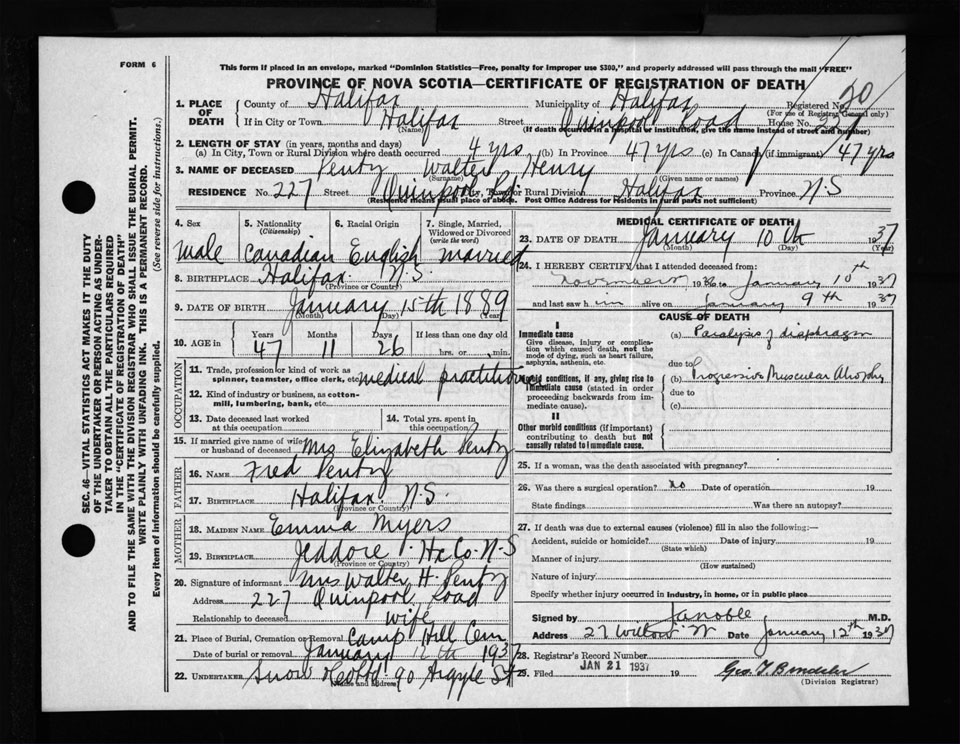 FORM 6
This form if placed in an envelope, marked "Dominion Statistics—Free, penalty for improper use $300," and properly addressed will pass through the mail "FREE"
PROVINCE OF NOVA SCOTIA—CERTIFICATE OF REGISTRATION OF DEATH
SEC. 46—VITAL STATISTICS ACT MAKES IT THE DUTY
OF THE UNDERTAKER OR PERSON ACTING AS UNDER-
TAKER TO OBTAIN ALL THE PARTICULARS REQUIRED
IN THE "CERTIFICATE OF REGISTRATION OF DEATH"
AND TO FILE THE SAME WITH THE DIVISION REGISTRAR WHO SHALL ISSUE THE BURIAL PERMIT.
WRITE PLAINLY WITH UNFADING INK. THIS IS A PERMANENT RECORD.
Every item of information should be carefully supplied. (See reverse side for instructions.)
1. PLACE OF DEATH
County of Halifax Municipality of Halifax Registered No. 20
(For use of Registrar General only)
If in City or Town Halifax Street Quinpool Road House No. 227
(Name) (If death occurred in a hospital or institution, give the name instead of street and number)
2. LENGTH OF STAY (in years, months and days)
(a) In City, Town or Rural Division where death occurred 4 yrs (b) In Province 47 yrs (c) In Canada (if immigrant) 47 yrs
3. NAME OF DECEASED Penty Walter Henry
(Surname) (Given name or names)
RESIDENCE No. 227 Street Quinpool Rd City, Town or Rural Division Halifax Province N-S
(Residence means usual place of abode. Post Office Address for Residents in rural parts not sufficient)
4. Sex 5. Nationality (Citizenship) 6. Racial Origin 7. Single, Married, Widowed or Divorced (write the word)
male Canadian English married
8. BIRTHPLACE Halifax N.S.
(Province or Country)
9. DATE OF BIRTH January 15th 1889
(Month) (Day) (Year)
10. AGE in Years Months Days If less than one day old
47 11 26 hrs. or min.
OCCUPATION
11. Trade, profession or kind of work as
spinner, teamster, office clerk, etc. medical practitioner
12. Kind of industry or business, as cotton-
mill, lumbering, bank, etc.
13. Date deceased last worked at this occupation
14. Total yrs. spent in this occupation
15. If married give name of wife
or husband of deceased Mrs Elizabeth Penty
FATHER
16. NAME Fred Penty
17. BIRTHPLACE Halifax N.S.
(Province or Country)
MOTHER
18. MAIDEN NAME Emma Myers
19. BIRTHPLACE Jeddore Hx Co. N-S
(Province or Country)
20. Signature of informant Mrs Walter H. Penty
Address 227 Quinpool Road
Relationship to deceased wife
21. Place of Burial, Cremation or Removal Camp Hill Cem.
Date of burial or removal January 12th 1937
22. UNDERTAKER Snow & Co Ltd. 90 Argyle St
(Name and Address)
MEDICAL CERTIFICATE OF DEATH
23. DATE OF DEATH January 10th 1937
(Month) (Day) (Year)
24. I HEREBY CERTIFY that I attended deceased from:
November 1936 to January 10th 1937
and last saw him alive on January 9th 1937
CAUSE OF DEATH
I
Immediate cause
Give disease, injury or complica-
tion which caused death, not the
mode of dying, such as heart failure,
asphyxia, asthenia, etc.
(a) Paralysis of diaphragm
due to
Morbid conditions, if any, giving rise to
immediate cause (stated in order
proceeding backwards from im-
mediate cause).
(b) Progressive Muscular Atrophy
due to
(c)
II
Other morbid conditions (if important)
contributing to death but not
causally related to immediate cause.
25. If a woman, was the death associated with pregnancy?
26. Was there a surgical operation? no Date of operation 19
State findings Was there an autopsy?
27. If death was due to external causes (violence) fill in also the following:—
Accident, suicide or homicide? Date of injury 19
(State which)
Manner of injury
(How sustained)
Nature of injury
Specify whether injury occurred in industry, in home, or in public place
Signed by J A Noble M.D.
Address 27 Willow St Date January 12th 1937
28. Registrar's Record Number
29. Filed JAN 21 1937 19
(Division Registrar)